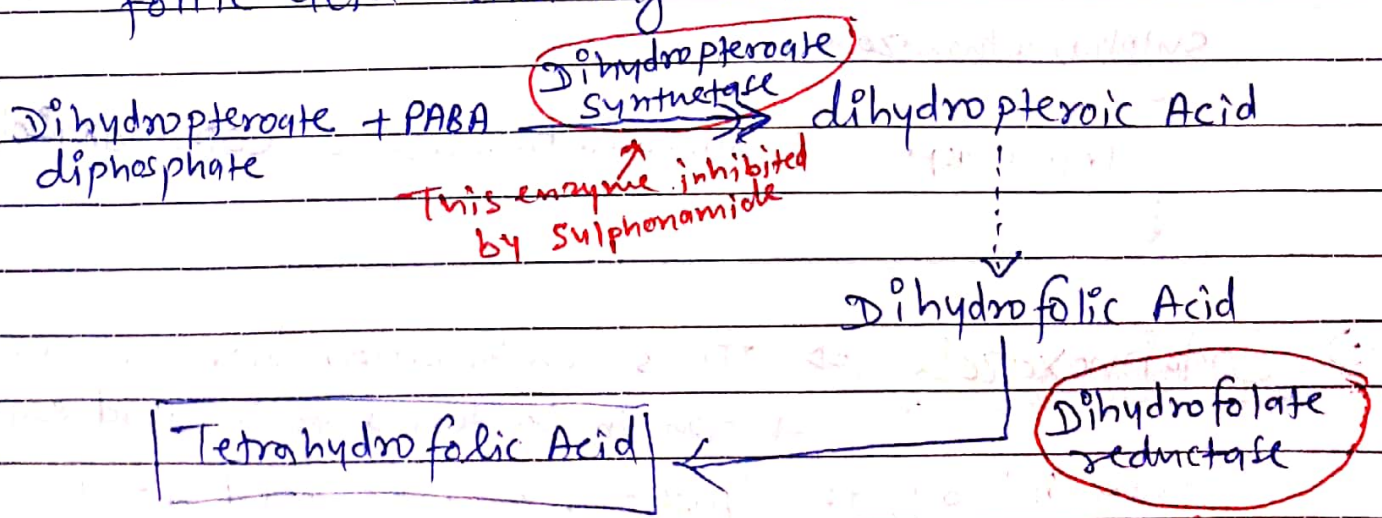 Dihydropteroate
synthetase
Dihydropteroate + PABA
diphosphate
dihydropteroic Acid
This enzyme inhibited
by Sulphonamide
Dihydrofolic Acid
Dihydrofolate
reductase
Tetrahydrofolic Acid